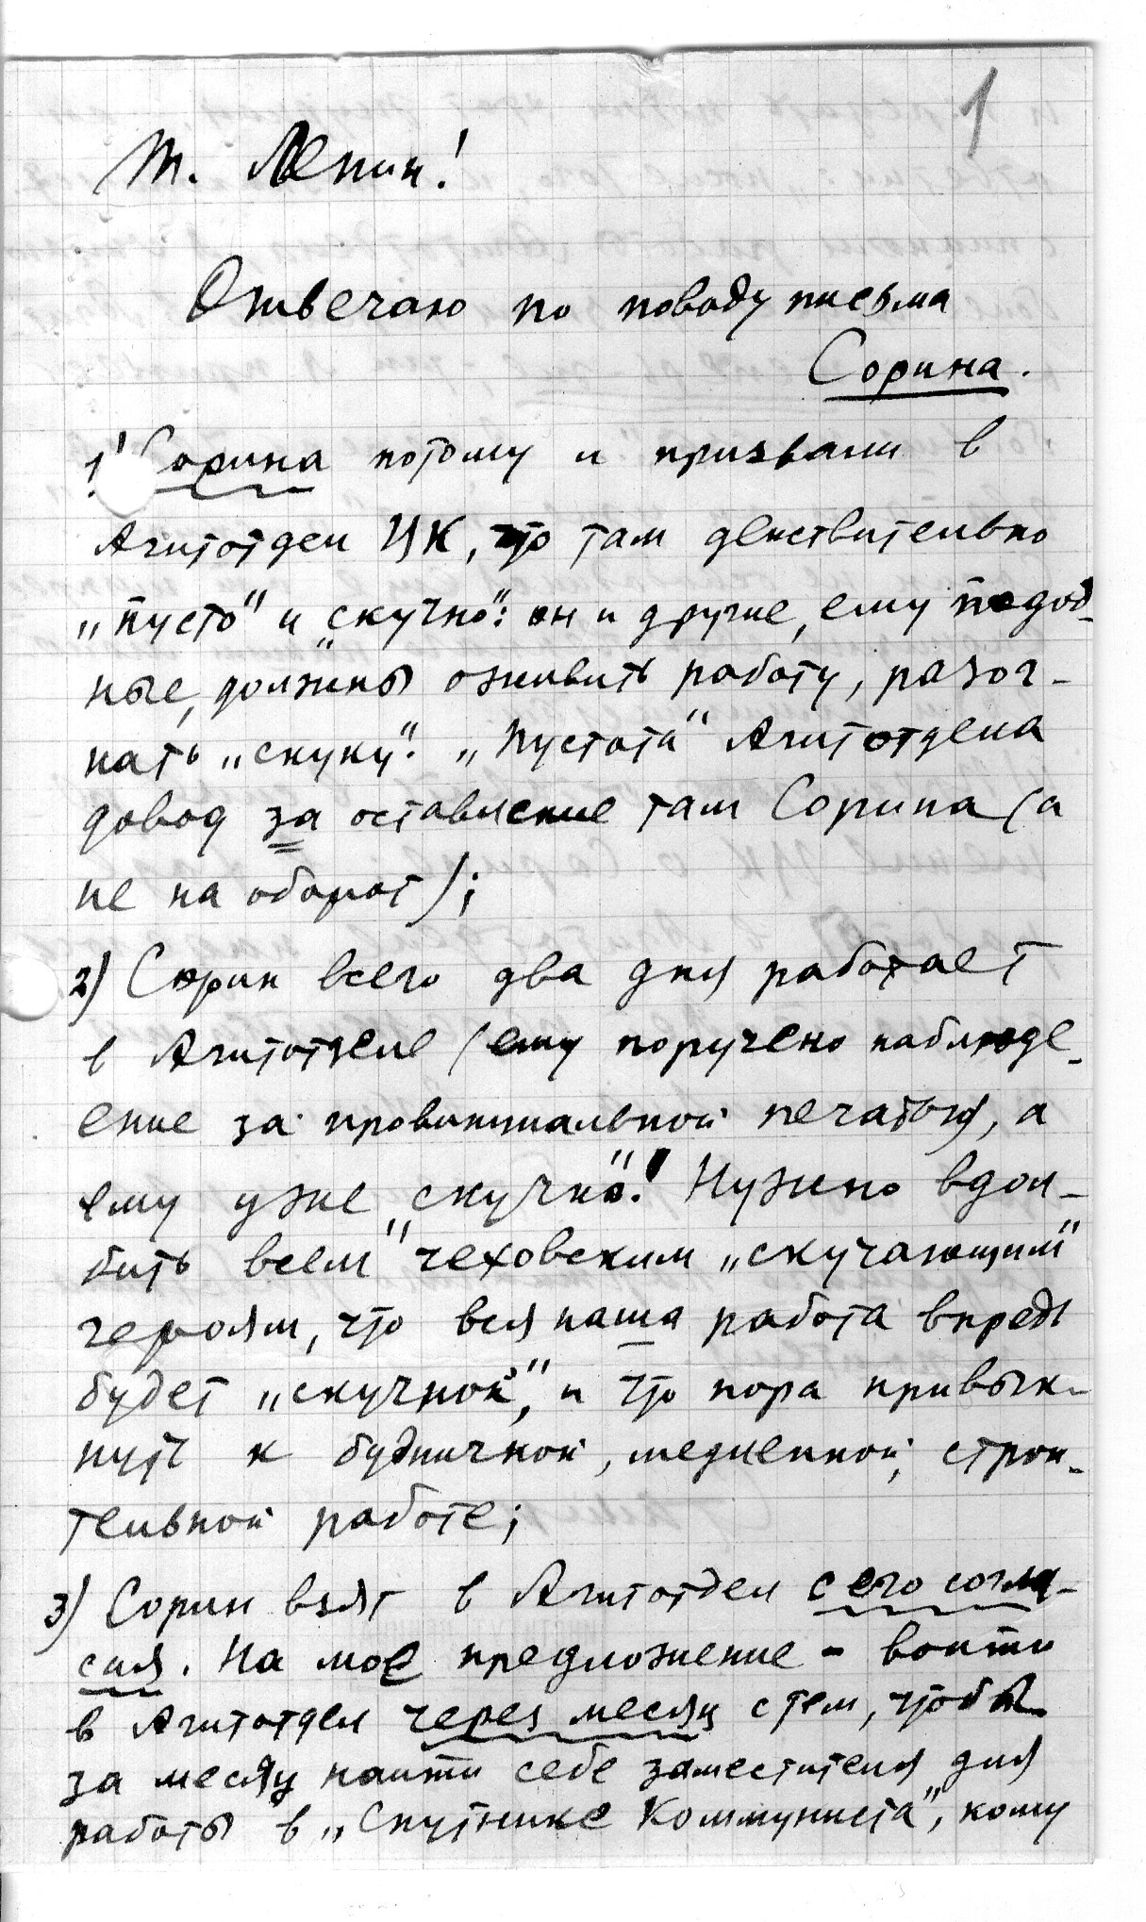 1
Т. Ленин!
Отвечаю по поводу письма
Сорина.
1) Сорина потому и призвали в
Агитотдел ЦК, что там действительно
„пусто" и „скучно": он и другие, ему подоб-
ные, должны оживить работу, разог-
нать „скуку". „Пустота" Агитотдела
довод за оставление там Сорина (а
не на оборот);
2) Сорин всего два дня работает
в Агитотделе (ему поручено наблюде-
ение за провинциальной печатью), а
ему уже „скучно"! Нужно вдол-
бить всем чеховским „скучающим"
героям, что вся наша работа впредь
будет „скучной", и что пора привык-
нуть к будничной, медленной, строи-
тельной работе;
3) Сорин взят в Агитотдел с его согла-
сия. На мое предложение - войти
в Агитотдел через месяц с тем, чтобы
за месяц найти себе заместителя для
работы в „Спутнике Коммуниста", кому